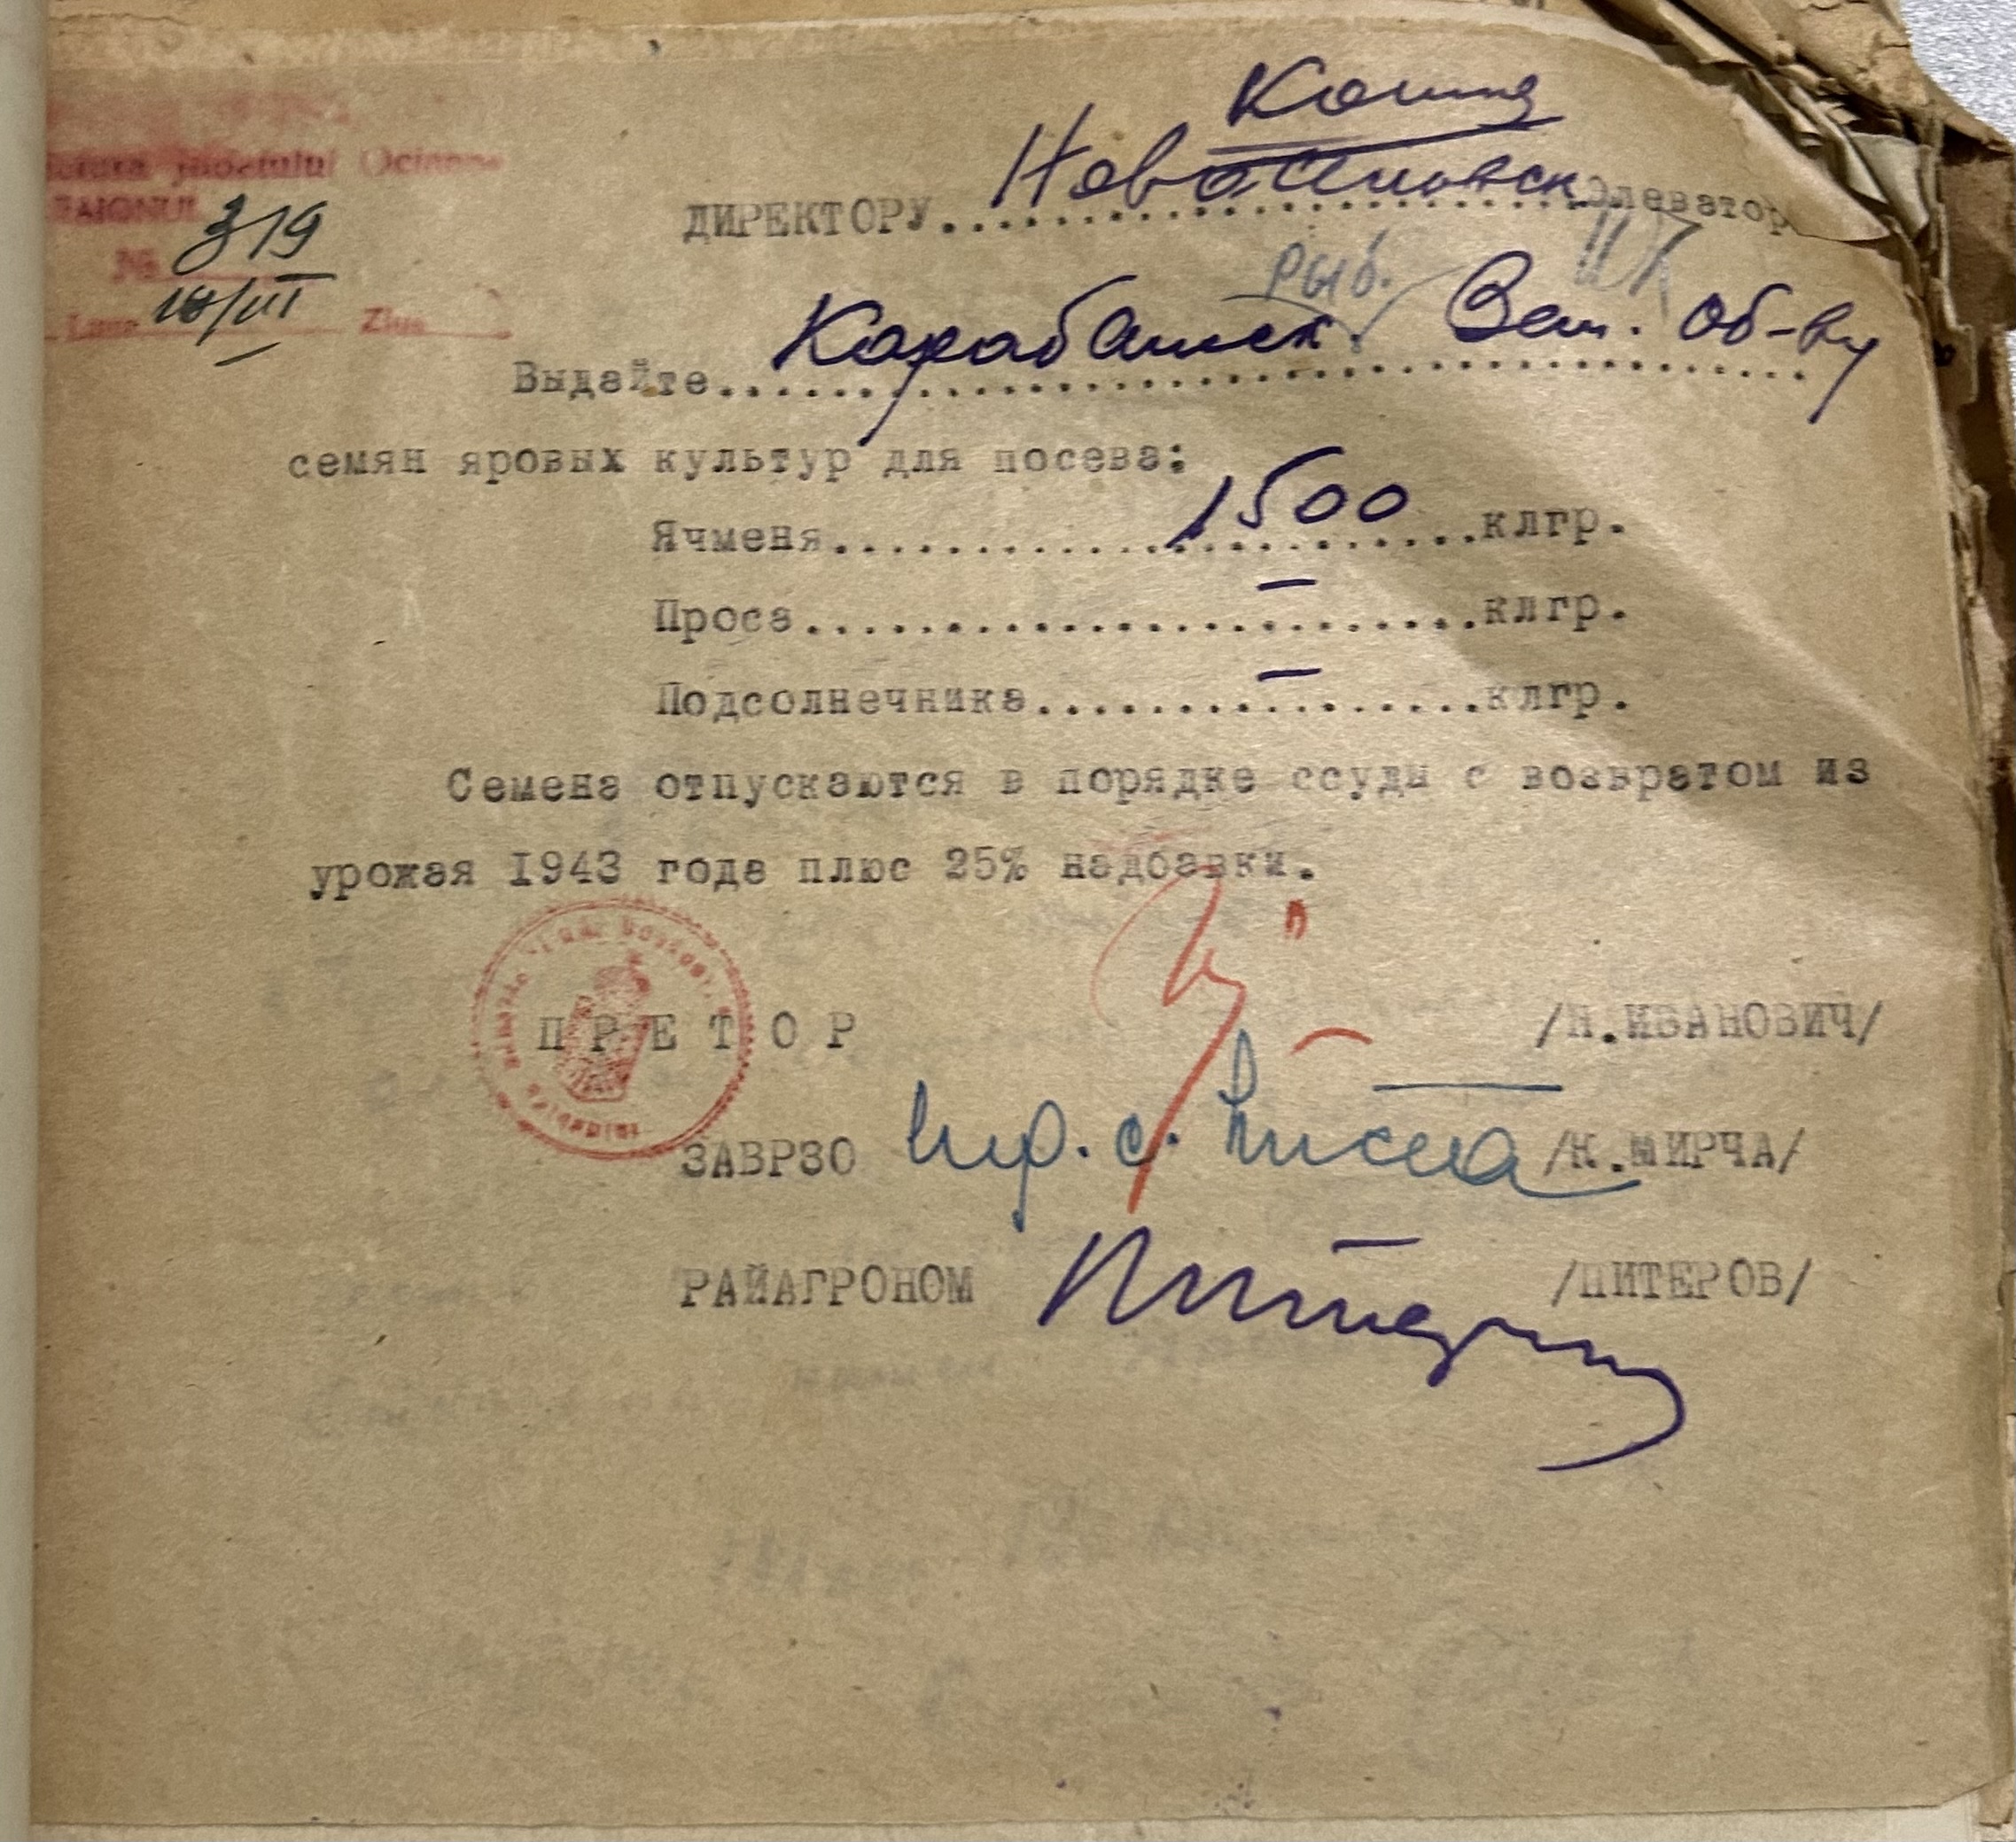 Копия
ДИРЕКТОРУ.........Элеватор
judetului
RAIONUL
№ 319
18/III
Luna Ziua
рыб.
Выдайте.....Карабашск. Зем. об-ву
семян яровых культур для посева:
Ячменя.....1500.....клгр.
Проса.....–.....клгр.
Подсолнечника.....–.....клгр.
Семена отпускаются в порядке ссуды с возвратом из
урожая 1943 года плюс 25% надбавки.
ПРЕТОР /Н.ИВАНОВИЧ/
ЗАВРЗО /К.МИРЧА/
РАЙАГРОНОМ /ПИТЕРОВ/